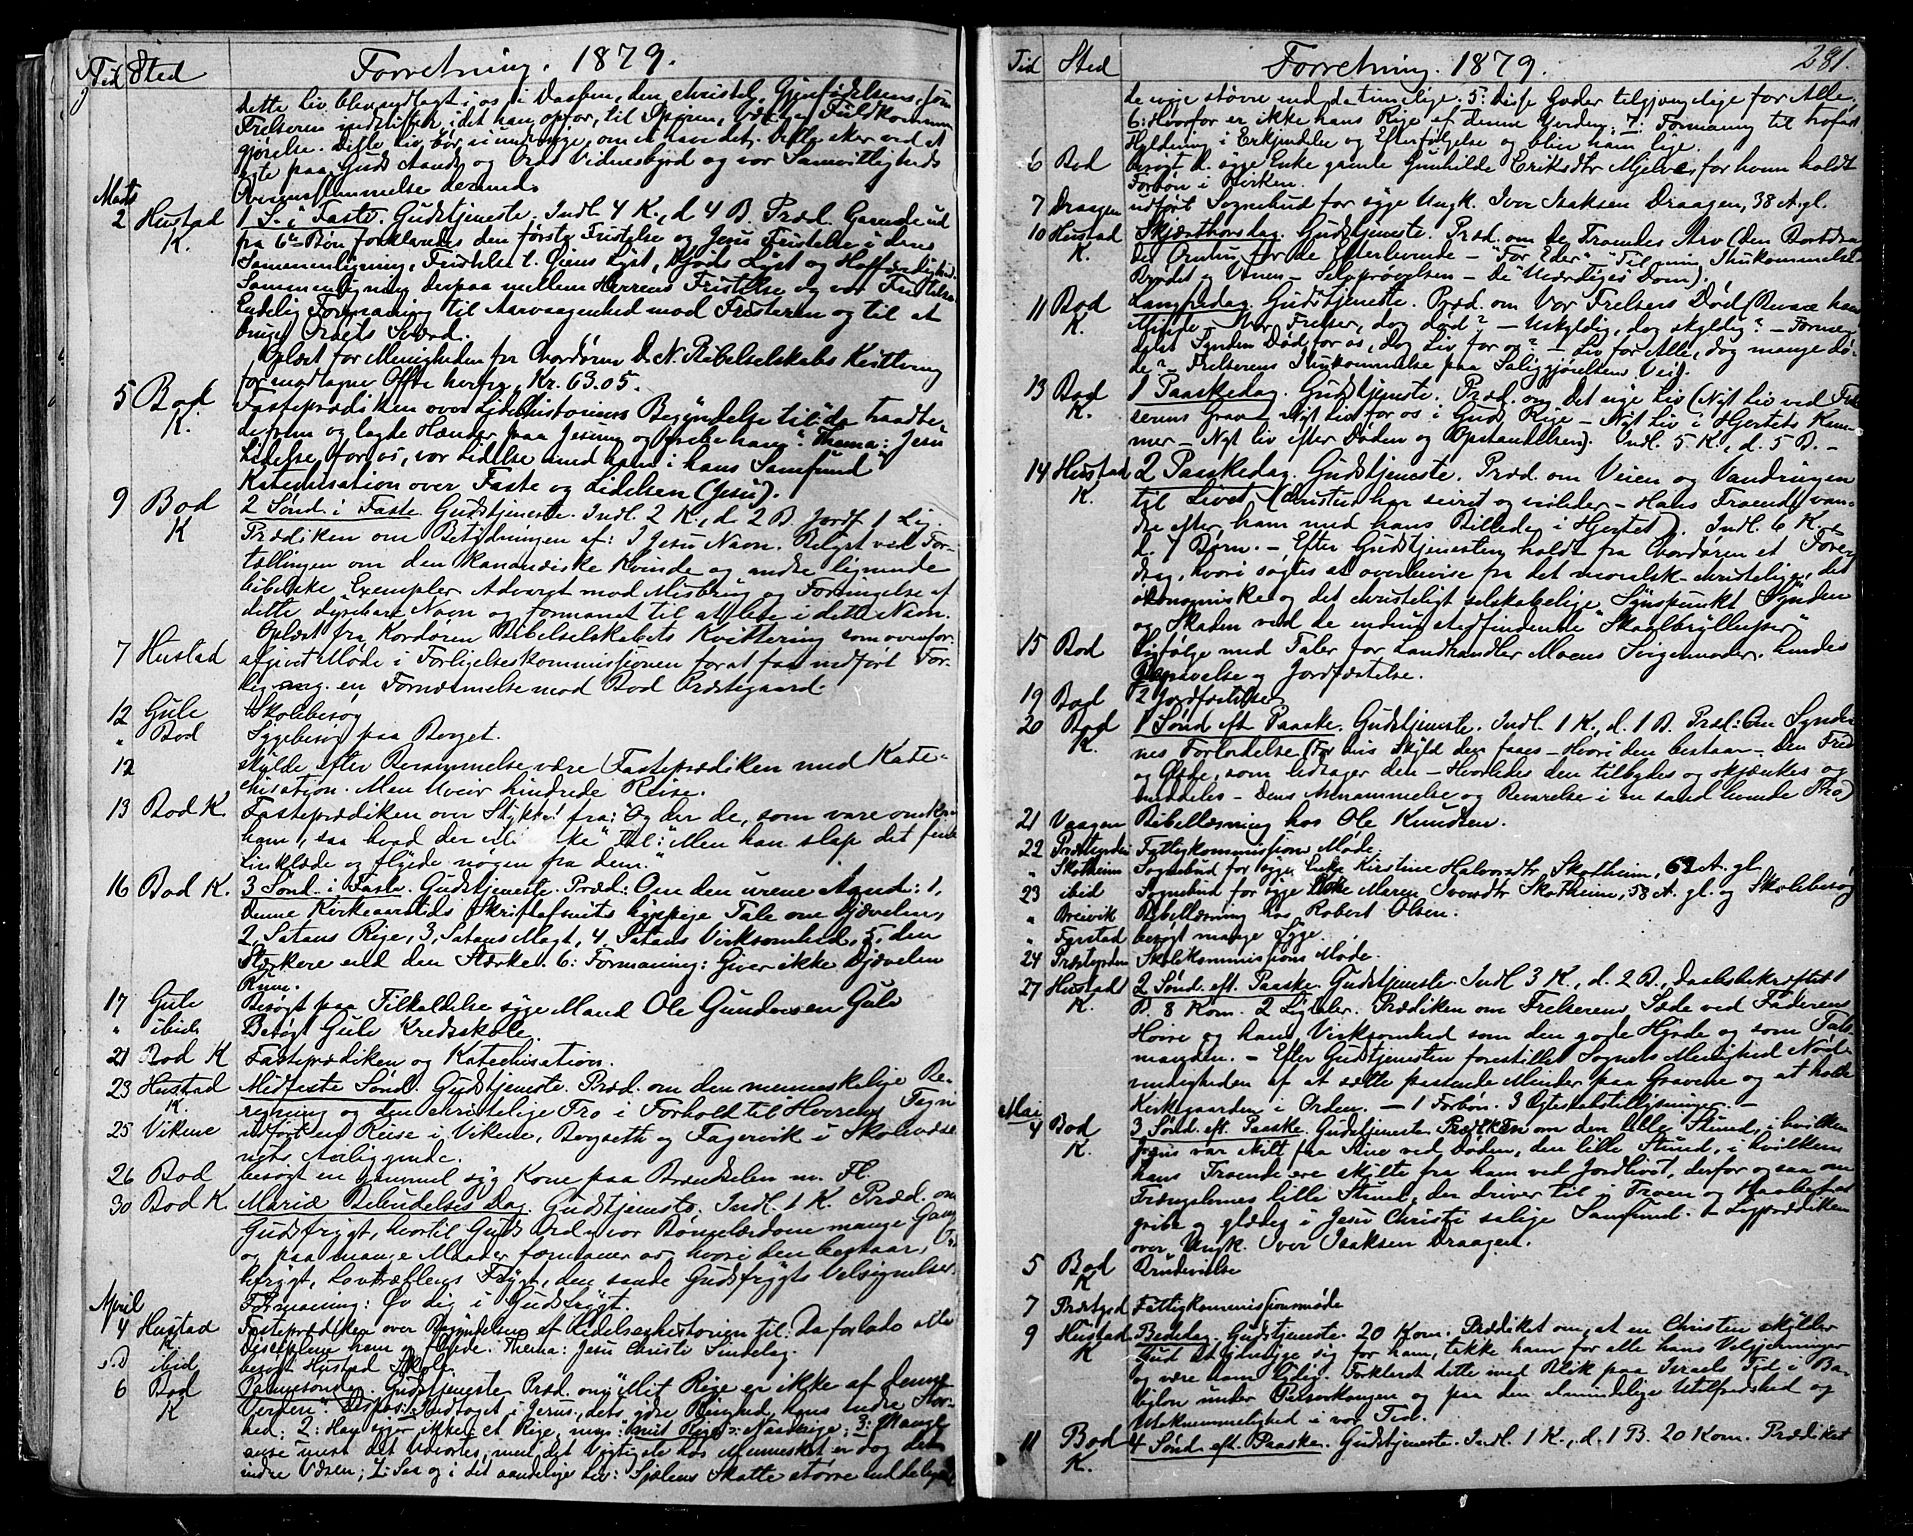 Tid Sted Forretning. 1879.
dette Liv blev nedlagt i os i Daaben, den christel. Gjenfødelsens, som
Frelseren indstiftede i det han opfor, til Spiren, Væxt og Fuldkommen
gjørelse. Dette Liv bør vi undersøge, om vi have det. Dette sker ved at
agte paa Guds Aands og Ords Vidnesbyrd og vor Samvittigheds
Overensstemmelse dermed.
Marts
2 Hustad K. 1 S. i Faste. Gudstjeneste. Indl. 4 K., d. 4 B. Præd. Gaaende ud
fra 6te Bøn forklaredes den første Fristelse og Jesu Fristelse i deres
Sammenligning, Fristelse t. Øiens Lyst, Kjøds Lyst og Hoffærdighed.
Sammenligning derpaa mellem Herrens Fristelse og vor Fristelse.
Endelig Formaning til Aarvaagenhed mod Fristeren og til at
bruge Ordets Sværd.
Oplæst for Menigheden fra Chordøren D. N. Bibelselskabs Kvittering
for modtagne Offre herfra, Kr. 63.05.
5 Bod K. Fasteprædiken over Lidelseshistoriens Begyndelse til "da traadte
de frem og lagde Hænder paa Jesum og grebe ham". Thema: Jesu
Lidelse for os, vor Lidelse med ham i hans Samfund
Katechisation over Faste og Lidelsen (Jesu).
9 Bod K 2 Sønd. i Faste. Gudstjeneste. Indl. 2 K., d. 2 B. Jordf. 1 Lig.
Prædiken om Betydningen af: I Jesu Navn. Belyst ved For-
tællingen om den kananæiske Kvinde og andre lignende
bibelske Exempler. Advaret mod Misbrug og Forringelse af
dette dyrebare Navn og formanet til at leve i dette Navn.
Oplæst fra Kordøren Bibelselskabets Kvittering som ovenfor.
7 Hustad afgivet Møde i Forligelseskommissionen for at faa indført For-
lig ang. en Fornærmelse mod Bod Præstegaard.
12 Gule Skolebesøg
" Bod Sygebesøg paa Berget.
12 skulde efter Berammelse være Fasteprædiken med Kate-
chisation. Men Uveir hindrede Reise.
13 Bod K. Fasteprædiken over Stykket fra: "Og der de, som vare omkring
ham, saa hvad der vil ske" til: "Men han slap det fine
Linklæde og flyede nøgen fra dem."
16 Bod K. 3 Sønd. i Faste. Gudstjeneste. Præd: Om den urene Aand: 1,
Denne Kirkeaarstids Skriftafsnits hyppige Tale om Djævelen,
2, Satans Rige, 3, Satans Magt, 4, Satans Virksomhed, 5, den
Stærkere end den Stærke. 6: Formaning: Giver ikke Djævelen
Rum.
17 Gule Besøgt paa Tilkaldelse syge Mand Ole Gundersen Gule
" ibid Besøgt Gule Kredsskole.
21 Bod K Fasteprædiken og Katechisation.
23 Hustad K. Midfaste Sønd. Gudstjeneste. Præd. om den menneskelige Be-
regning og den christelige Tro i Forhold til Herrens Tegn
25 Vikene udført en Reise i Vikene, Bergseth og Fagervik i Skolevæse-
nets Anliggende.
26 Bod besøgt en gammel syg Kone paa Brendselen m. Fl.
30 Bod K Mariæ Bebudelses Dag. Gudstjeneste. Indl. 1 K. Præd. om
Gudsfrygt, hvortil Guds Ord og vor Børnelærdom mange Gange
og paa mange Maader formaner os, hvori den bestaar,
Lovtrællens Frygt, den sande Gudsfrygts Velsignelser
Formaning: Øv dig i Gudsfrygt.
April
4 Hustad K Fasteprædiken over Begyndelsen af Lidelseshistorien til: Da forlode alle
Disciplene ham og flyede. Thema: Jesu Christi Sindelag.
s. D ibid besøgt Hustad Skole.
6 Bod K Palmesøndag. Gudstjeneste. Præd. om: "Mit Rige er ikke af denne
Verden". Dispos: 1: Indtoget i Jerus., dets ydre Ringhed, hans indre Stor-
hed; 2: Han siger ikke: et Rige, men: "mit Rige": Naaderige; 3: Mange
anse mest det Udvortes, men det Vigtigste hos Mennesket er dog dets
indre Væsen; 4: Saa og i det aandelige Liv: Sjælens Skatte større end de legemlige
Tid Sted Forretning. 1879. 281.
de evige større end de timelige. 5: disse Goder tilgjængelige for Alle,
6: Hvorfor er ikke hans Rige af denne Verden; 7: Formaning til trofast
Hyldning i Erkjendelse og Efterfølgelse og blive ham lige.
6 Bod besøgt d. syge Enke gamle Gunhilde Eriksdtr Mjelve, for hvem holdt
Forbøn i Kirken.
7 Draagen udført Sognebud for syge Ungk. Iver Isaksen Draagen, 38 A. gl.
10 Hustad K. Skjærthorsdag. Gudstjeneste. Præd. om de Troendes Arv (den Bortdra-
des Omhu for de Efterlevende – "For Eder" – Til min Ihukommelse
Brødet og Vinen – Selvprøvelsen – De "Uværdiges" Dom).
11 Bod K. Langfredag. Gudstjeneste. Præd. om Vor Frelsers Død (Bevare hans
Minde – Vor Frelser, dog død? – Uskyldig, dog skyldig? – Fornæg-
delse Synden Død for os, dog Liv for os? – Liv for Alle, dog mange dø-
de? – Frelserens Ihukommelse paa Saliggjørelsens Vei).
13 Bod K. 1 Paaskedag. Gudstjeneste. Præd. om det nye Liv (Nyt Liv ved Frel-
serens Grav – Nyt Liv for os i Guds Rige – Nyt Liv i Hjertets Kam-
mer – Nyt Liv efter Døden og Opstandelsen). Indl. 5 K., d. 5 B. –
14 Hustad K. 2 Paaskedag. Gudstjeneste. Præd. om Veien og Vandringen
til Livet (Christus har seiret og veileder – Hans Troende van-
dre efter ham med hans Billede i Hjertet). Indl. 6 K.,
d. 7 Børn. – Efter Gudstjenesten holdt fra Chordøren et Fore-
drag, hvori søgtes at overbevise fra det moralsk-christelige, det
økonomiske og det christeligt selskabelige Synspunkt Synden
og Skaden ved de endnu stedfindende "Skaalbryllupper".
15 Bod Ligfølge med Taler for Landhandler Moens Svigermoder. Hendes
Begravelse og Jordfæstelse.
19 Bod 2 Jordfæstelser
20 Bod K. 1 Sønd. eft. Paaske. Gudstjeneste. Indl. 1 K., d. 1 B. Præd: Om Synder-
nes Forladelse (For hvis Skyld den faaes – Hvori den bestaar – den Fred
og Glæde, som ledsager den – Hvorledes den tilbydes og skjænkes og
meddeles – Dens Annammelse og Bevarelse i en sand levende Tro)
21 Vaagen Bibellæsning hos Ole Knudsen.
22 Præstegrden Fattigkommissions Møde.
" Skotheim Sognebud for syge Enke Kirstine Halvorsdtr Skotheim, 62 A. gl.
23 ibid Sognebud for syge Maren Ivarsdtr Skotheim, 58 A. gl. og Skolebesøg
" Breivik Bibellæsning hos Robert Olsen.
" Farstad besøgt mange Syge.
24 Præstegrden Skolekommissions Møde.
27 Hustad K. 2 Sønd. eft. Paaske. Gudstjeneste. Indl. 3 K., d. 2 B., Daabsbekræftet 1
B. 8 Kom. 2 Ligtaler. Prædiken om Frelserens Sæde ved Faderens
Høire og hans Virksomhed som den gode Hyrde og som Tals-
manden. – Efter Gudstjenesten forestillet Sognets Menighed Nød-
vendigheden af at sætte passende Minder paa Gravene og at holde
Kirkegaarden i Orden. – 1 Forbøn. 3 Ægteskabstillysninger. –
Mai
4 Bod K. 3 Sønd. eft. Paaske. Gudstjeneste. Prædiken om den lille Stund, i hvilken
Jesus var skilt fra Sine ved Døden, den lille Stund, i hvilken
hans Troende ere skilte fra ham ved Jordlivet, derfor ogsaa om
Trængslernes lille Stund, der driver til i Troen og Haabet at
gribe og glædes i Jesu Christi salige Samfund. – Ligprædiken
over Ungk. Iver Isaksen Draagen.
5 Bod K Brudevielse
7 Præstegrd Fattigkommissionsmøde
9 Hustad K Bededag. Gudstjeneste. 20 Kom. Prædiket om, at en Christen skylder
Gud at ydmyge sig for ham, takke ham for alle hans Velgjerninger
og være ham lydig. Forklaret dette med Blik paa Israels Tid i Ba-
bylon under Perserkongen og paa den almindelige Utilfredshed og
Utaknemmelighed i vor Tid.
11 Bod K. 4 Sønd. eft. Paaske. Gudstjeneste. Indl. 1 K., d. 1 B. 20 Kom. Prædiket